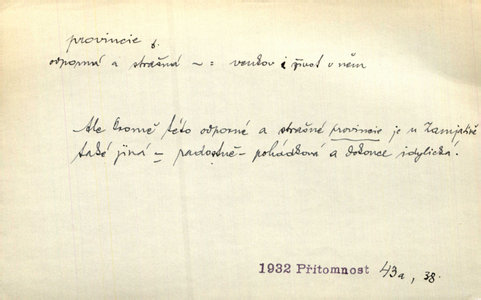 provincie f.
odporná a strašná ~ = venkov i život v něm
Ale kromě této odporné a strašné provincie je u Zamjatina
také jiná – radostně-pohádková a dokonce idylická.
1932 Přítomnost 43a, 38.